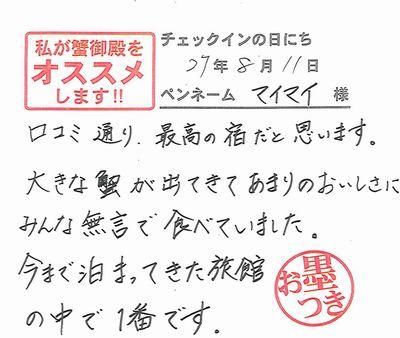 私が蟹御殿を
オススメ
します!!
チェックインの日にち
27年8月11日
ペンネーム マイマイ 様
口コミ通り、最高の宿だと思います。
大きな蟹が出てきてあまりのおいしさに
みんな無言で食べていました。
今まで泊まってきた旅館
の中で1番です。
お墨つき